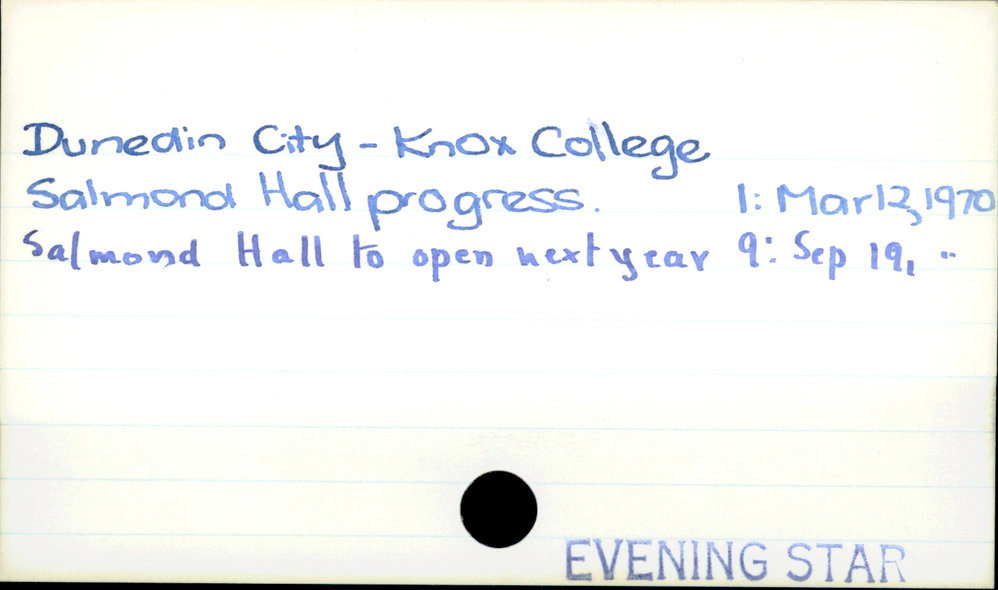 Dunedin City - Knox College
Salmond Hall progress. 1: Mar 12, 1970
Salmond Hall to open next year 9: Sep 19, "
EVENING STAR